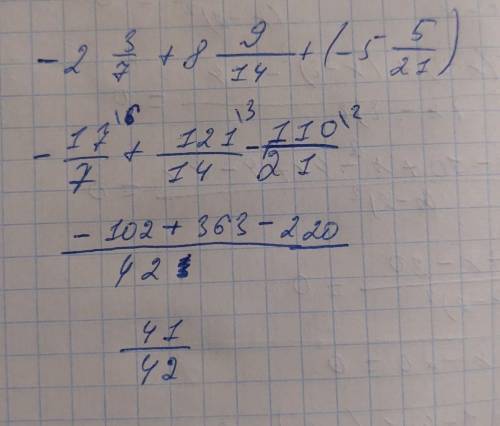 - 2 3/7 + 8 9/14 + (- 5 5/21)
- 17\6/7 + 121\3/14 - 110\2/21
- 102 + 363 - 220/42
41/42